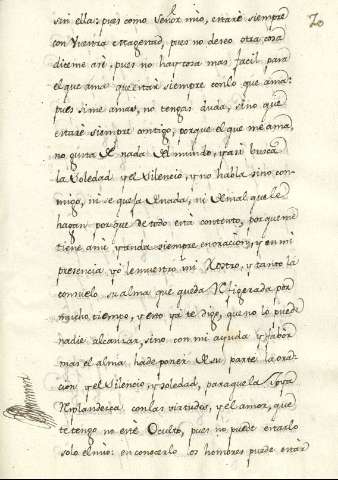 20
sin ellas: pues como Señor mio, estare siempre
con Vuestra Magestad, pues no deseo otra cosa
diceme asi, pues no hay cosa mas facil para
el que ama que estar siempre con lo que ama:
pues si me amas, no tengas duda, sino que
estare siempre contigo, porque el que me ama,
no gusta de nada del mundo, y asi busca
la Soledad y el Silencio, y no habla sino con-
migo, ni se quexa de nada, ni de mal que le
hagan por que de todo està contento, por que me
tiene a mi y anda siempre en oracion, y en mi
presencia yo le muestro mi Rostro, y tanto la
consuelo su alma que queda Refigerada por
mucho tiempo, y esto ya te digo, que no lo puede
nadie alcanzar, sino con mi ayuda y favor
mas el alma ha de poner de su parte la ora-
cion y el Silencio, y soledad, para que la
Resplandesca con las virtudes, y el amor, que
te tengo no esté Oculto, pues no puede estarlo
solo el mio: en conocerlo los hombres puede estàr